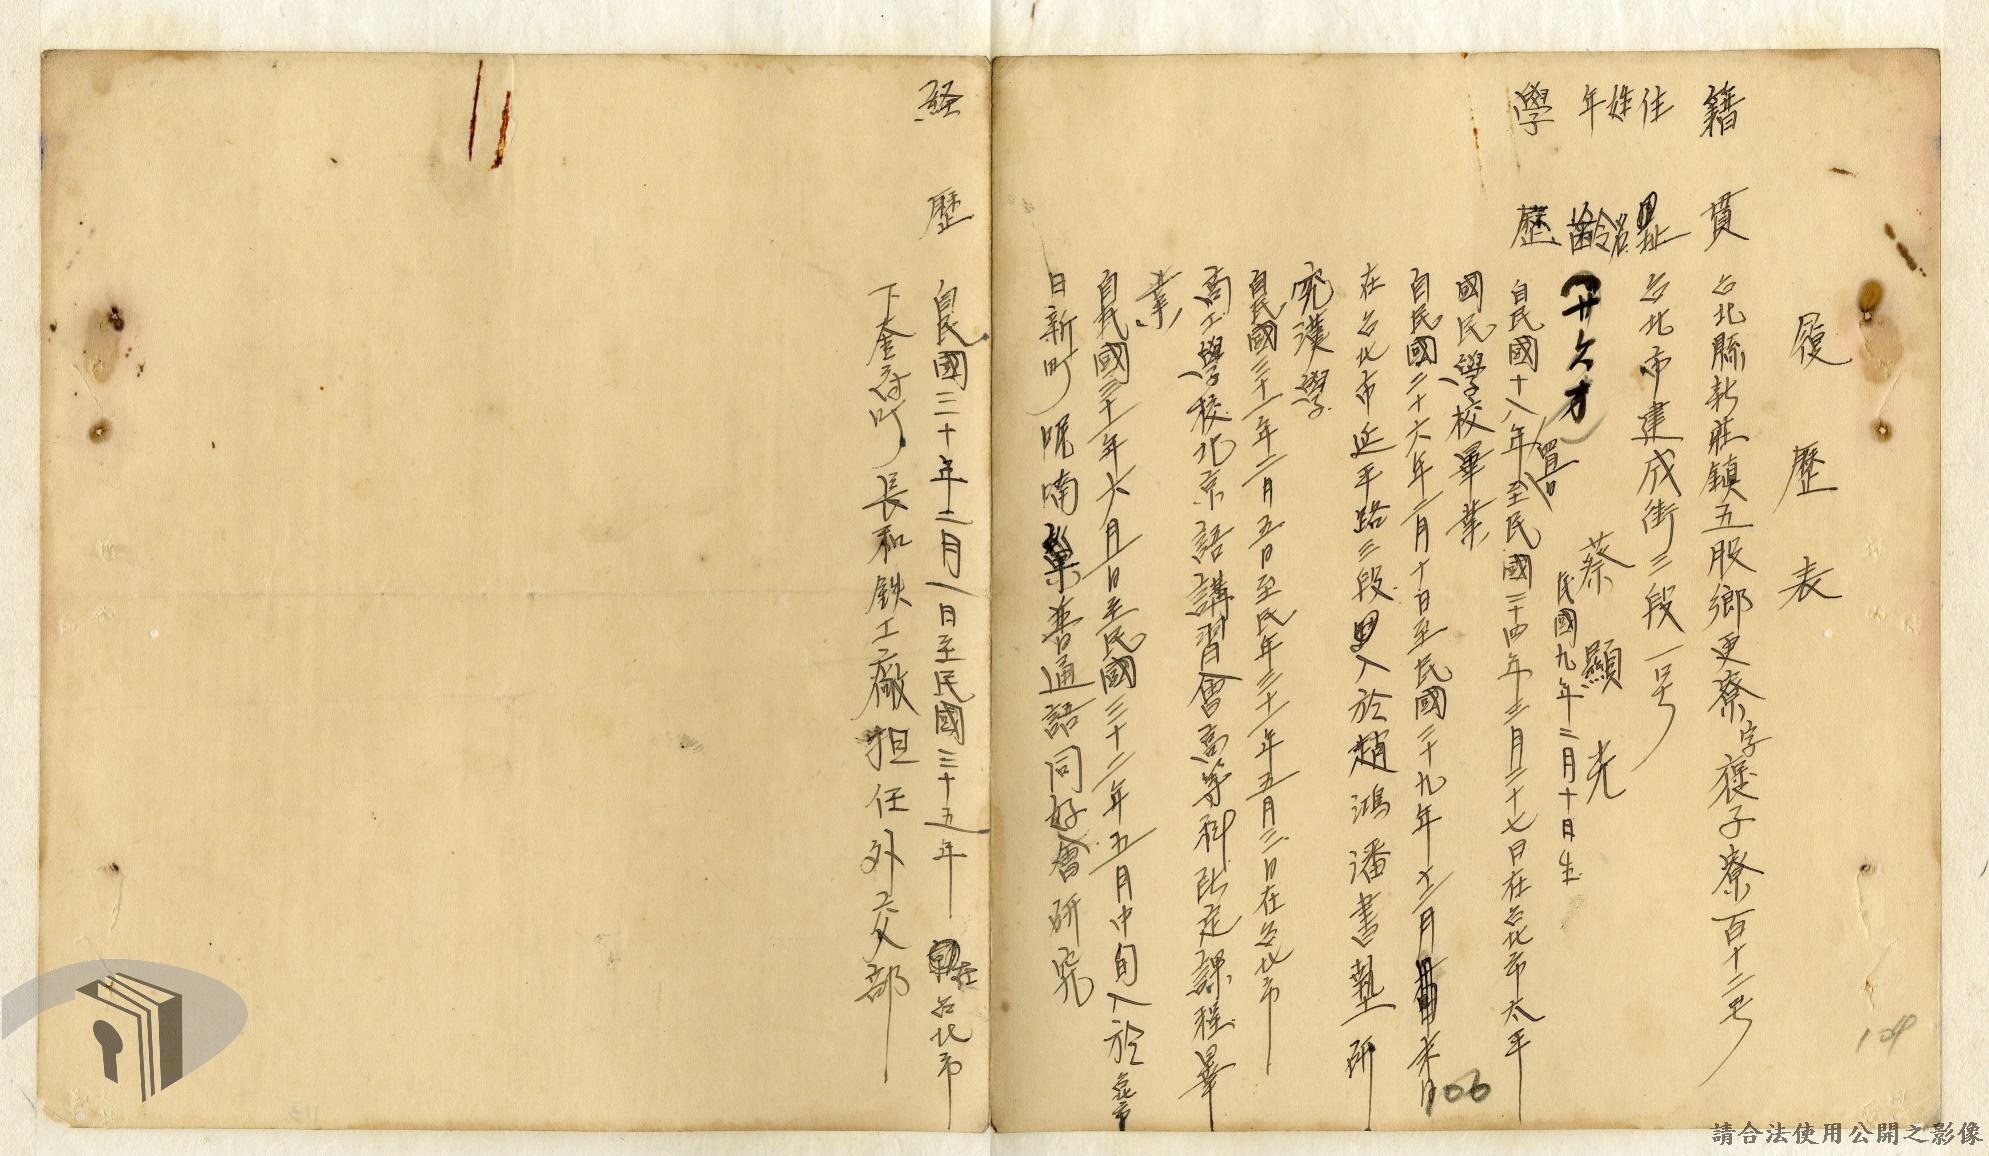 履歷表
籍貫 台北縣新莊鎮五股鄉更寮字獲子寮百十二号
住址 台北市建成街三段一号
姓名 蔡顯光
年齡 廿六才 民國九年二月十日生
學歷 自民國十八年至民國二十四年三月二十七日在台北市太平
國民學校畢業
自民國二十六年二月十日至民國二十九年十二月末日
在台北市延平路三段入於趙鴻潘書塾所
究漢學
自民國三十一年二月五日至民年三十一年五月三日在台北市
高工學校北京語講習會高等科所定課程畢
業
自民國三十一年六月一日至民國三十二年五月中旬入於台北市
日新町呢喃巢普通語同好會研究
経歷 自民國三十年二月一日至民國三十五年 在台北市
下奎府町長和鉄工廠担任外交部
106
104
請合法使用公開之影像